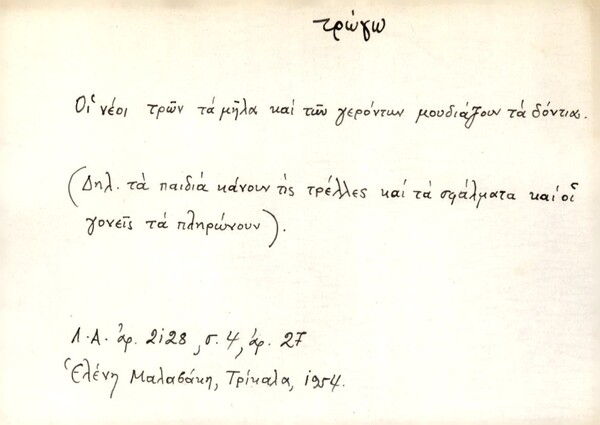 τρώγω
Οἱ νέοι τρῶν τά μῆλα καί τῶν γερόντων μουδιάζουν τά δόντια.
(Δηλ. τά παιδιά κάνουν τίς τρέλλες καί τά σφάλματα καί οἱ
γονεῖς τά πληρώνουν).
Λ.Α. ἀρ. 2128, σ. 4, ἀρ. 27
Ἑλένη Μαλαβάκη, Τρίκαλα, 1954.